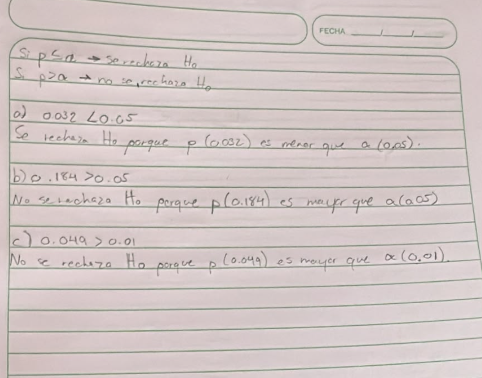 FECHA / /
Si p≤α → se rechaza Ho
Si p>α → no se rechaza Ho
a) 0.032 <0.05
Se rechaza Ho porque p (0.032) es menor que α (0.05).
b) 0.184 >0.05
No se rechaza Ho porque p (0.184) es mayor que α (0.05)
c) 0.049 > 0.01
No se rechaza Ho porque p (0.049) es mayor que α (0.01).